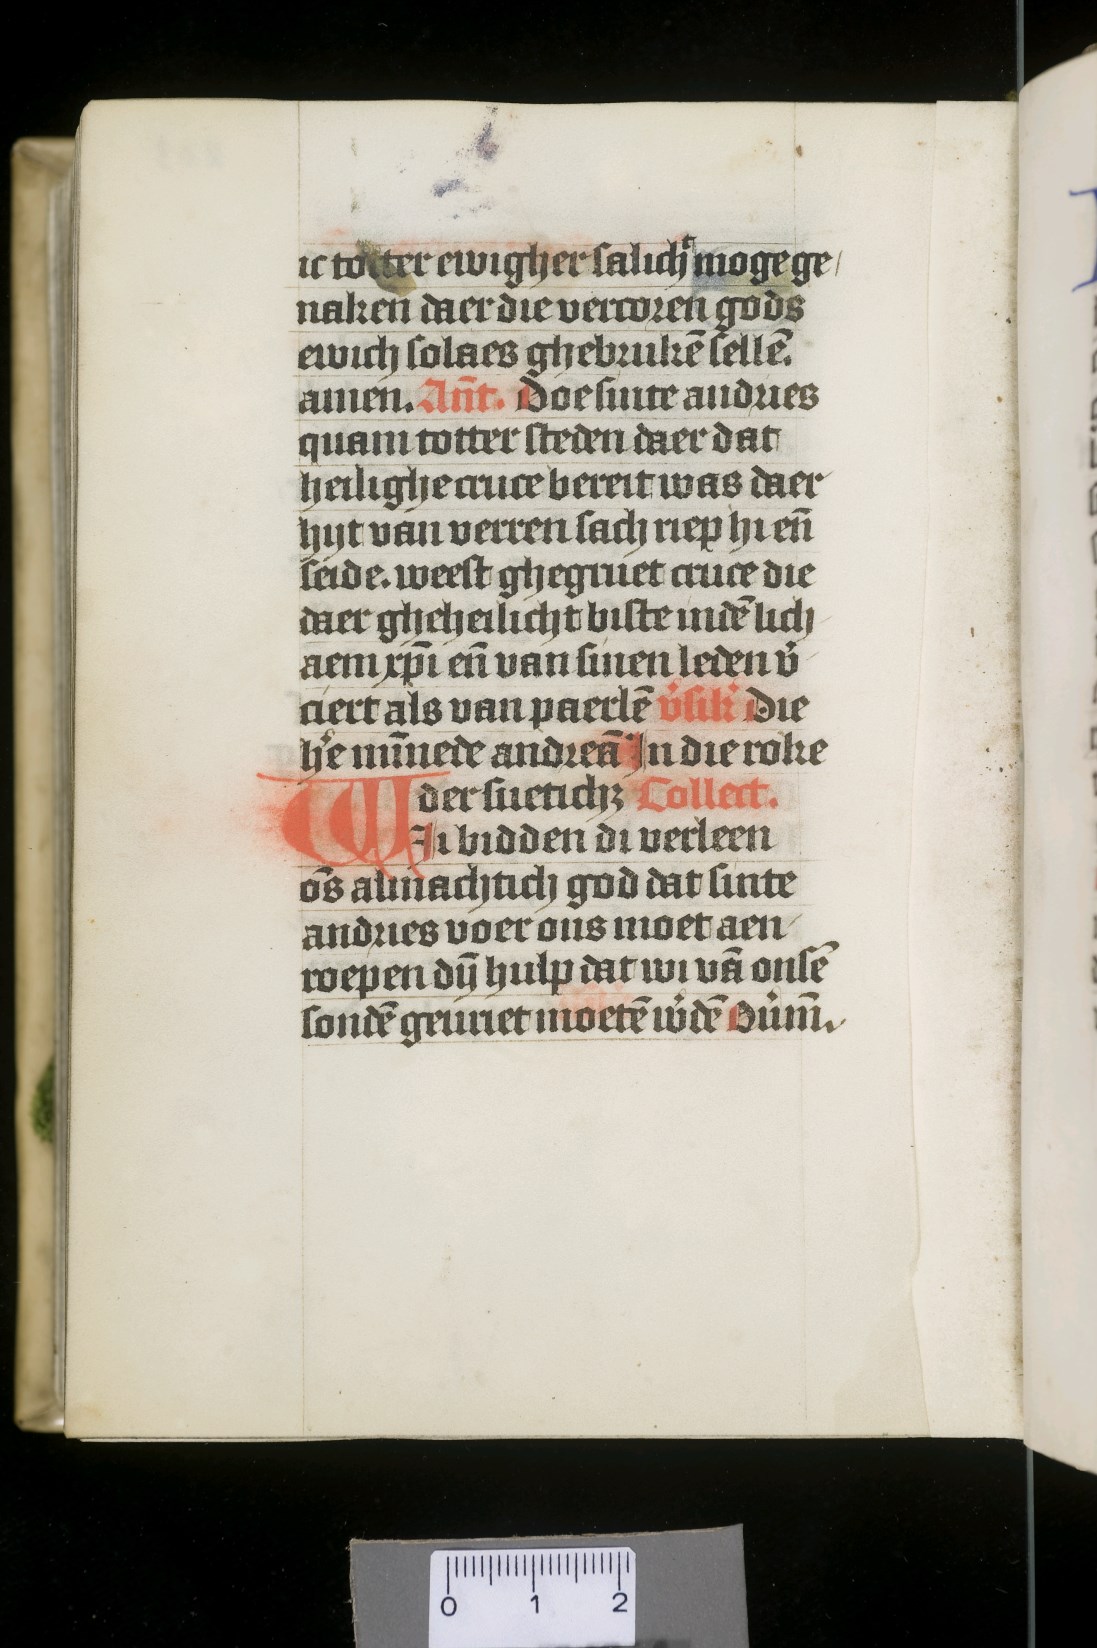 ic totter ewigher salichᵗ moge ge/
naken daer die vercoren gods
ewich solaes ghebrukē sellē.
amen. Añt. Doe sinte andries
quam totter steden daer dat
heilighe cruce bereit was daer
hijt van verren sach riep hi eñ
seide. weest ghegruet cruce die
daer gheheilicht biste indē lich
aem xp̄i eñ van sinen leden v̾
ciert als van paerlē v̾sik̾ Die
h̾e mīnede andreā In die roke
der sueticħʒ Collect.
Wi bidden di verleen
ōs almachtich god dat sinte
andries voer ons moet aen
roepen dij̄ hulp dat wi vā onsē
sondē gevriet moetē w̾dē Ou̾m̄.
0 1 2